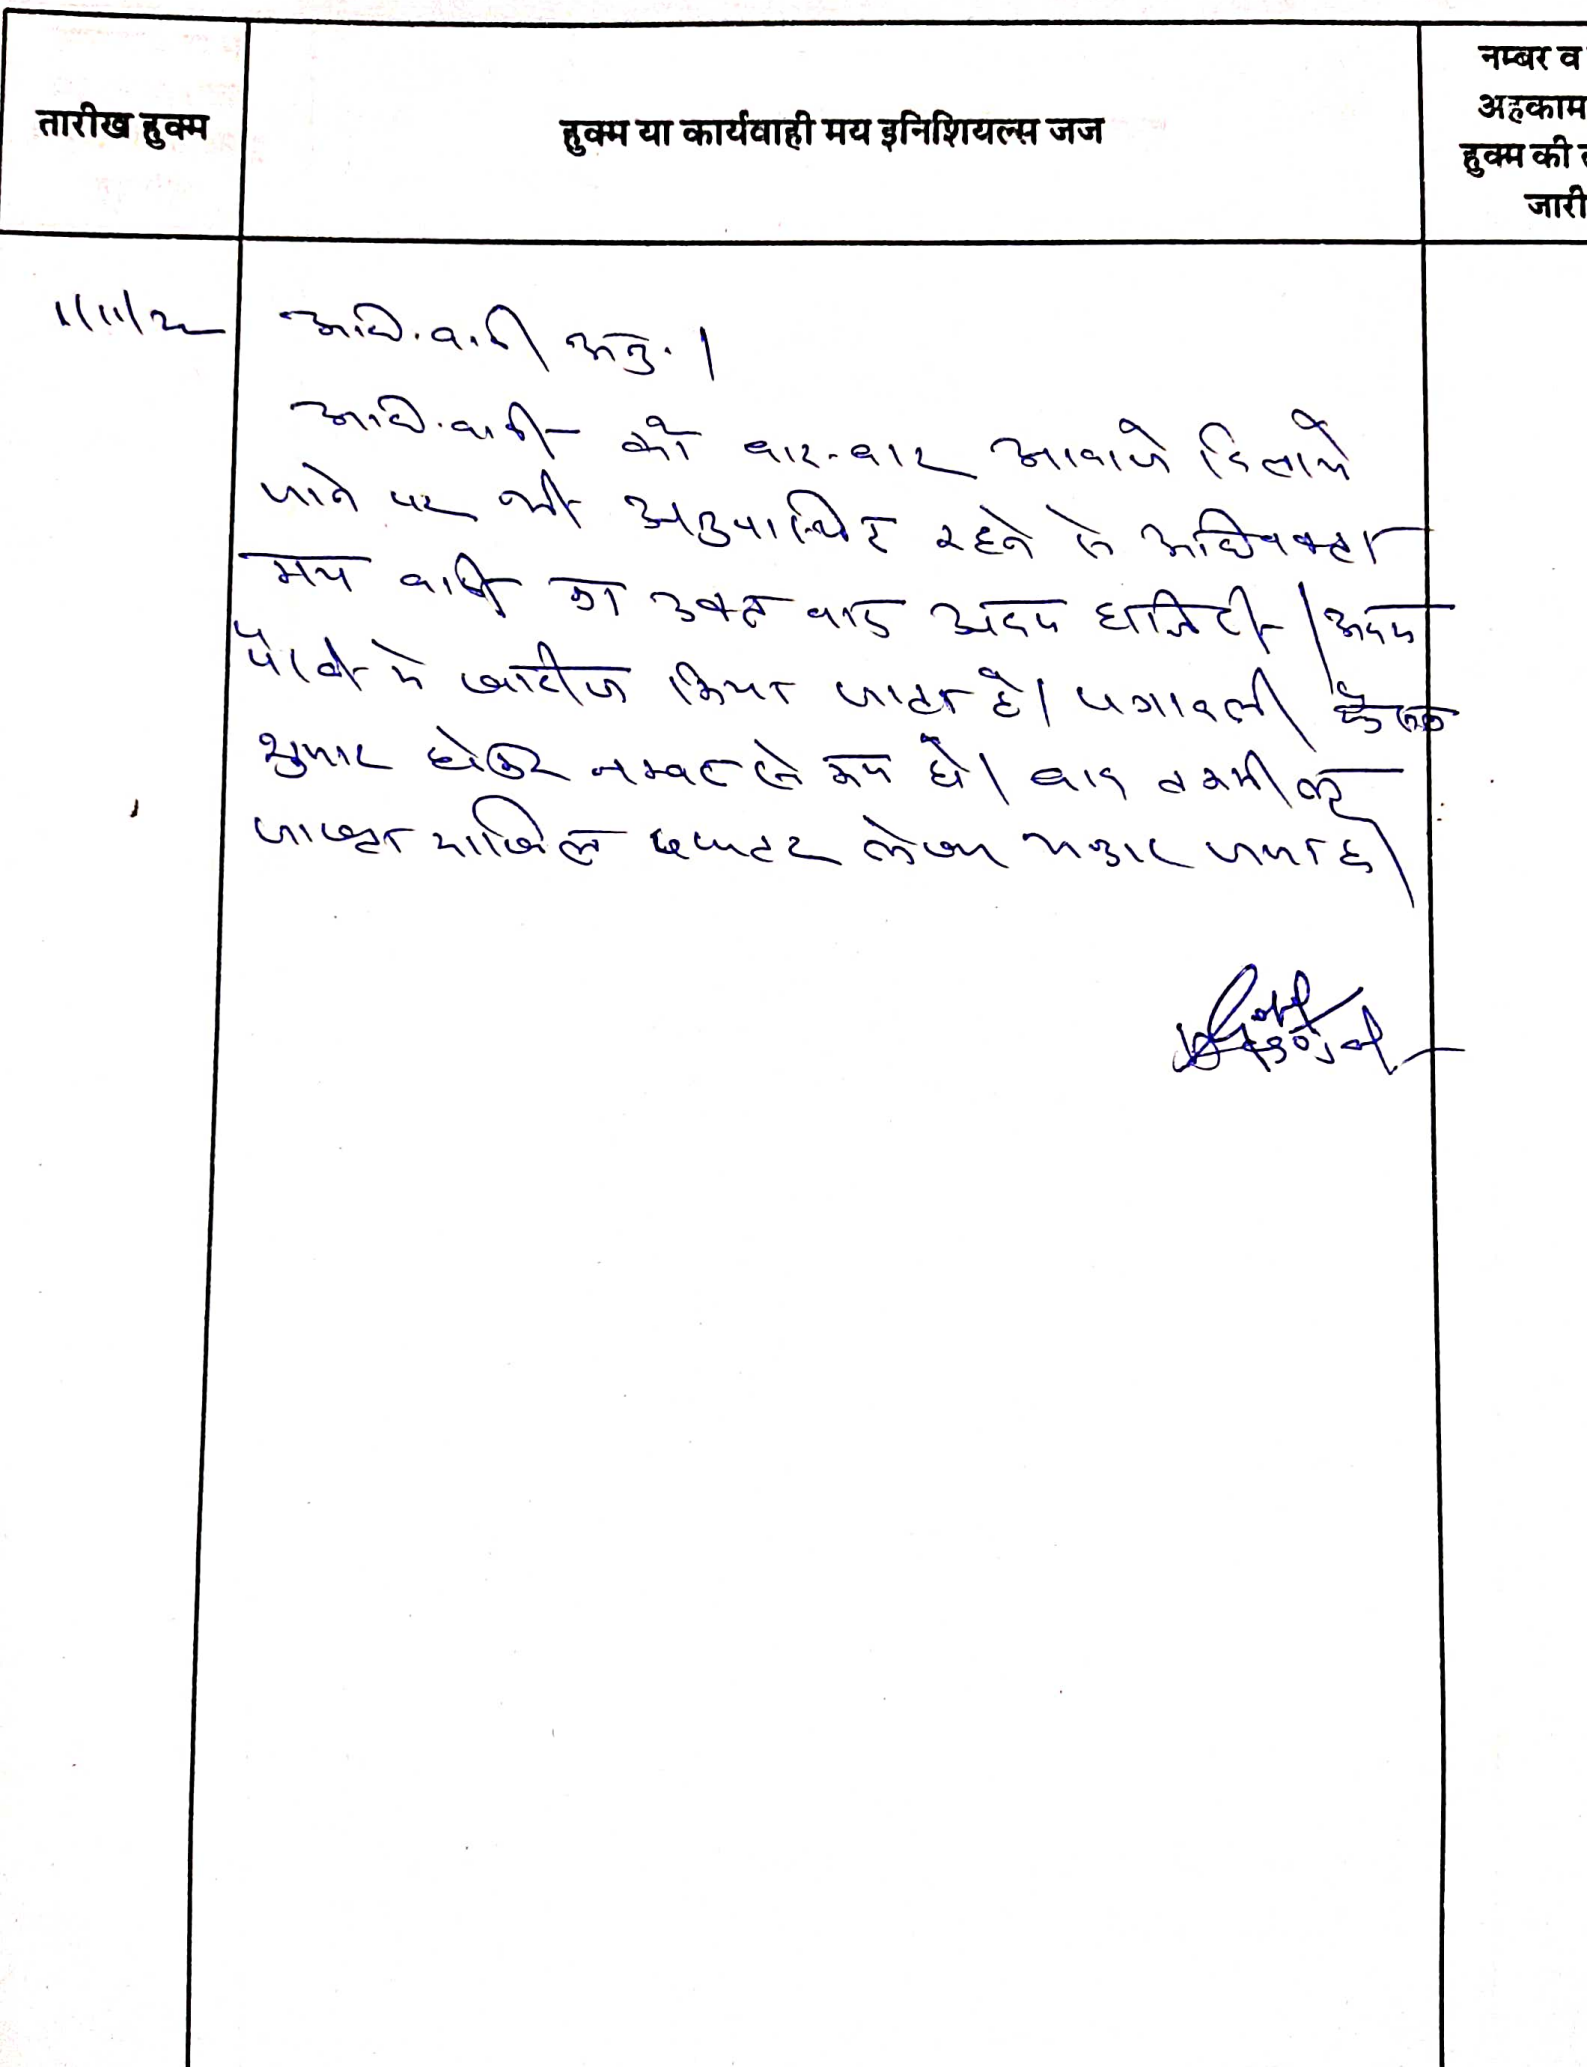 तारीख हुक्म
हुक्म या कार्यवाही मय इनिशियल्स जज
नम्बर व
अहकाम
हुक्म की
जारी
11/11/22
अधि. वादी अनु.।
अधि. वादी को बार-बार आवाजे दिलाये
जाने पर भी अनुपस्थित रहने से अधिवक्ता
मय वादी का उक्त वाद अदम हाजिरी/अदम
पैरवी मे खारीज किया जाता है। पत्रावली फैसल
शुमार होकर नम्बर से कम हो। बाद तकमील
जाब्ता दाखिल दफ्तर लेख्य भण्डार जमा हो